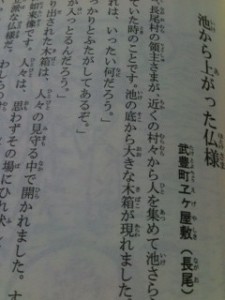 池から上がった仏様
武豊町ヱヶ屋敷(長尾)
、長尾村の領主さまが、近くの村々から人を集めて池さら
ていた時のことです。池の底から大きな木箱が現れました。
れは、いったい何だろう。」
がっとるんだろう。」
っかりとふたがしてあるぞ。」
り出された木箱は、人々の見守る中で開かれました。す
如来様です。人々は、思わずその場にひれ伏し
な仏様だ。